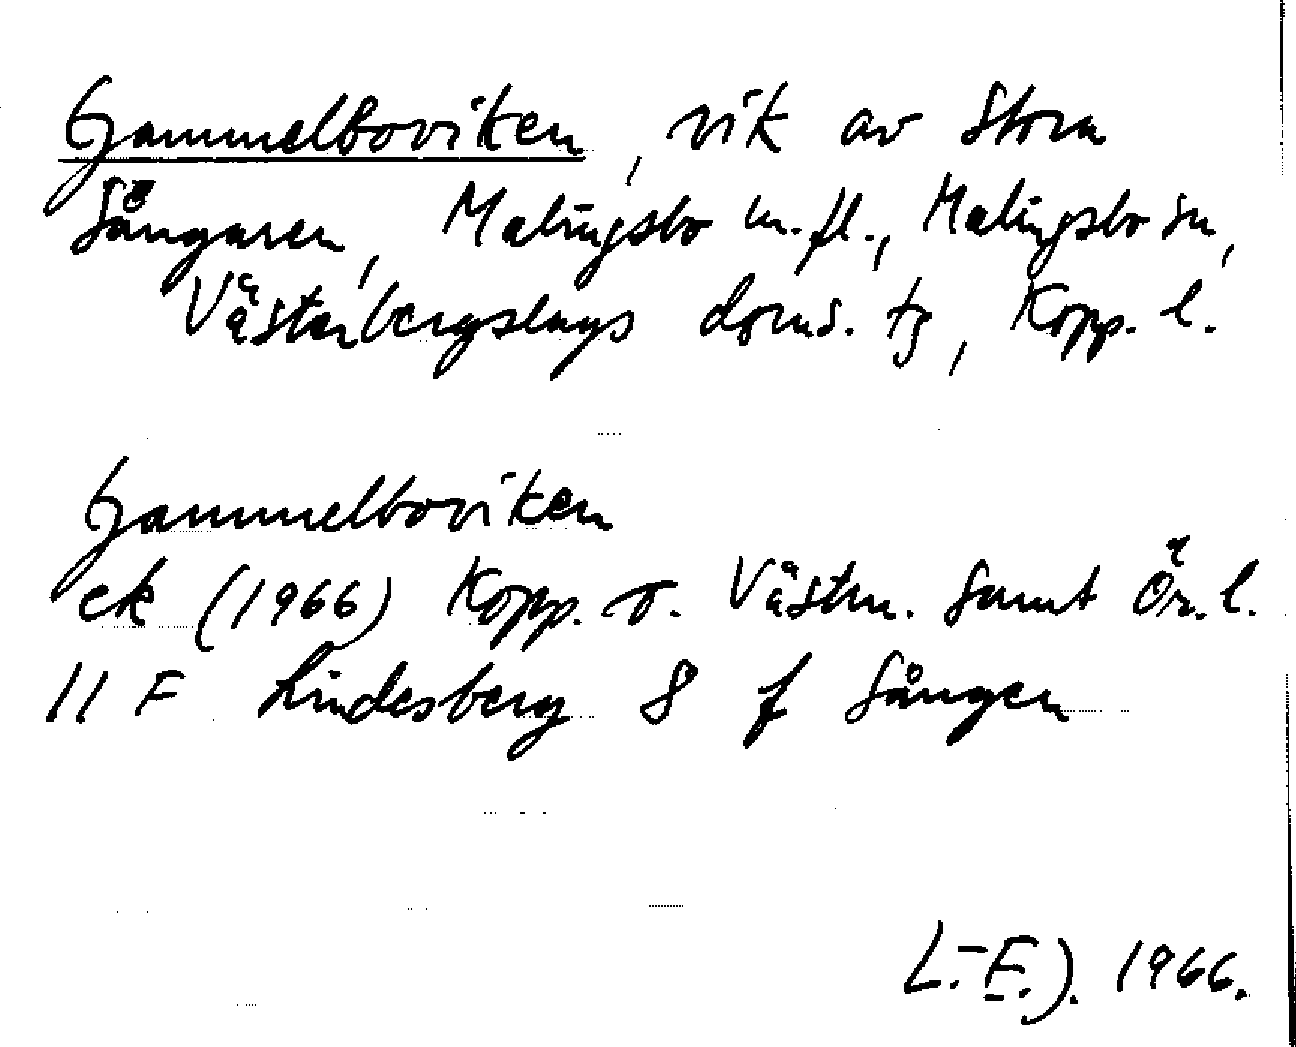 Gammelboviken, vik av Stora
Sångaren, Malingsbo m.fl., Malingsbo sn,
Västerbergslags doms. tg, Kopp. l.
Gammelboviken
ek (1966) Kopp. o. Västm. samt Ör. l.
11 F Lindesberg 8 f Sången
L.-E. J. 1966.